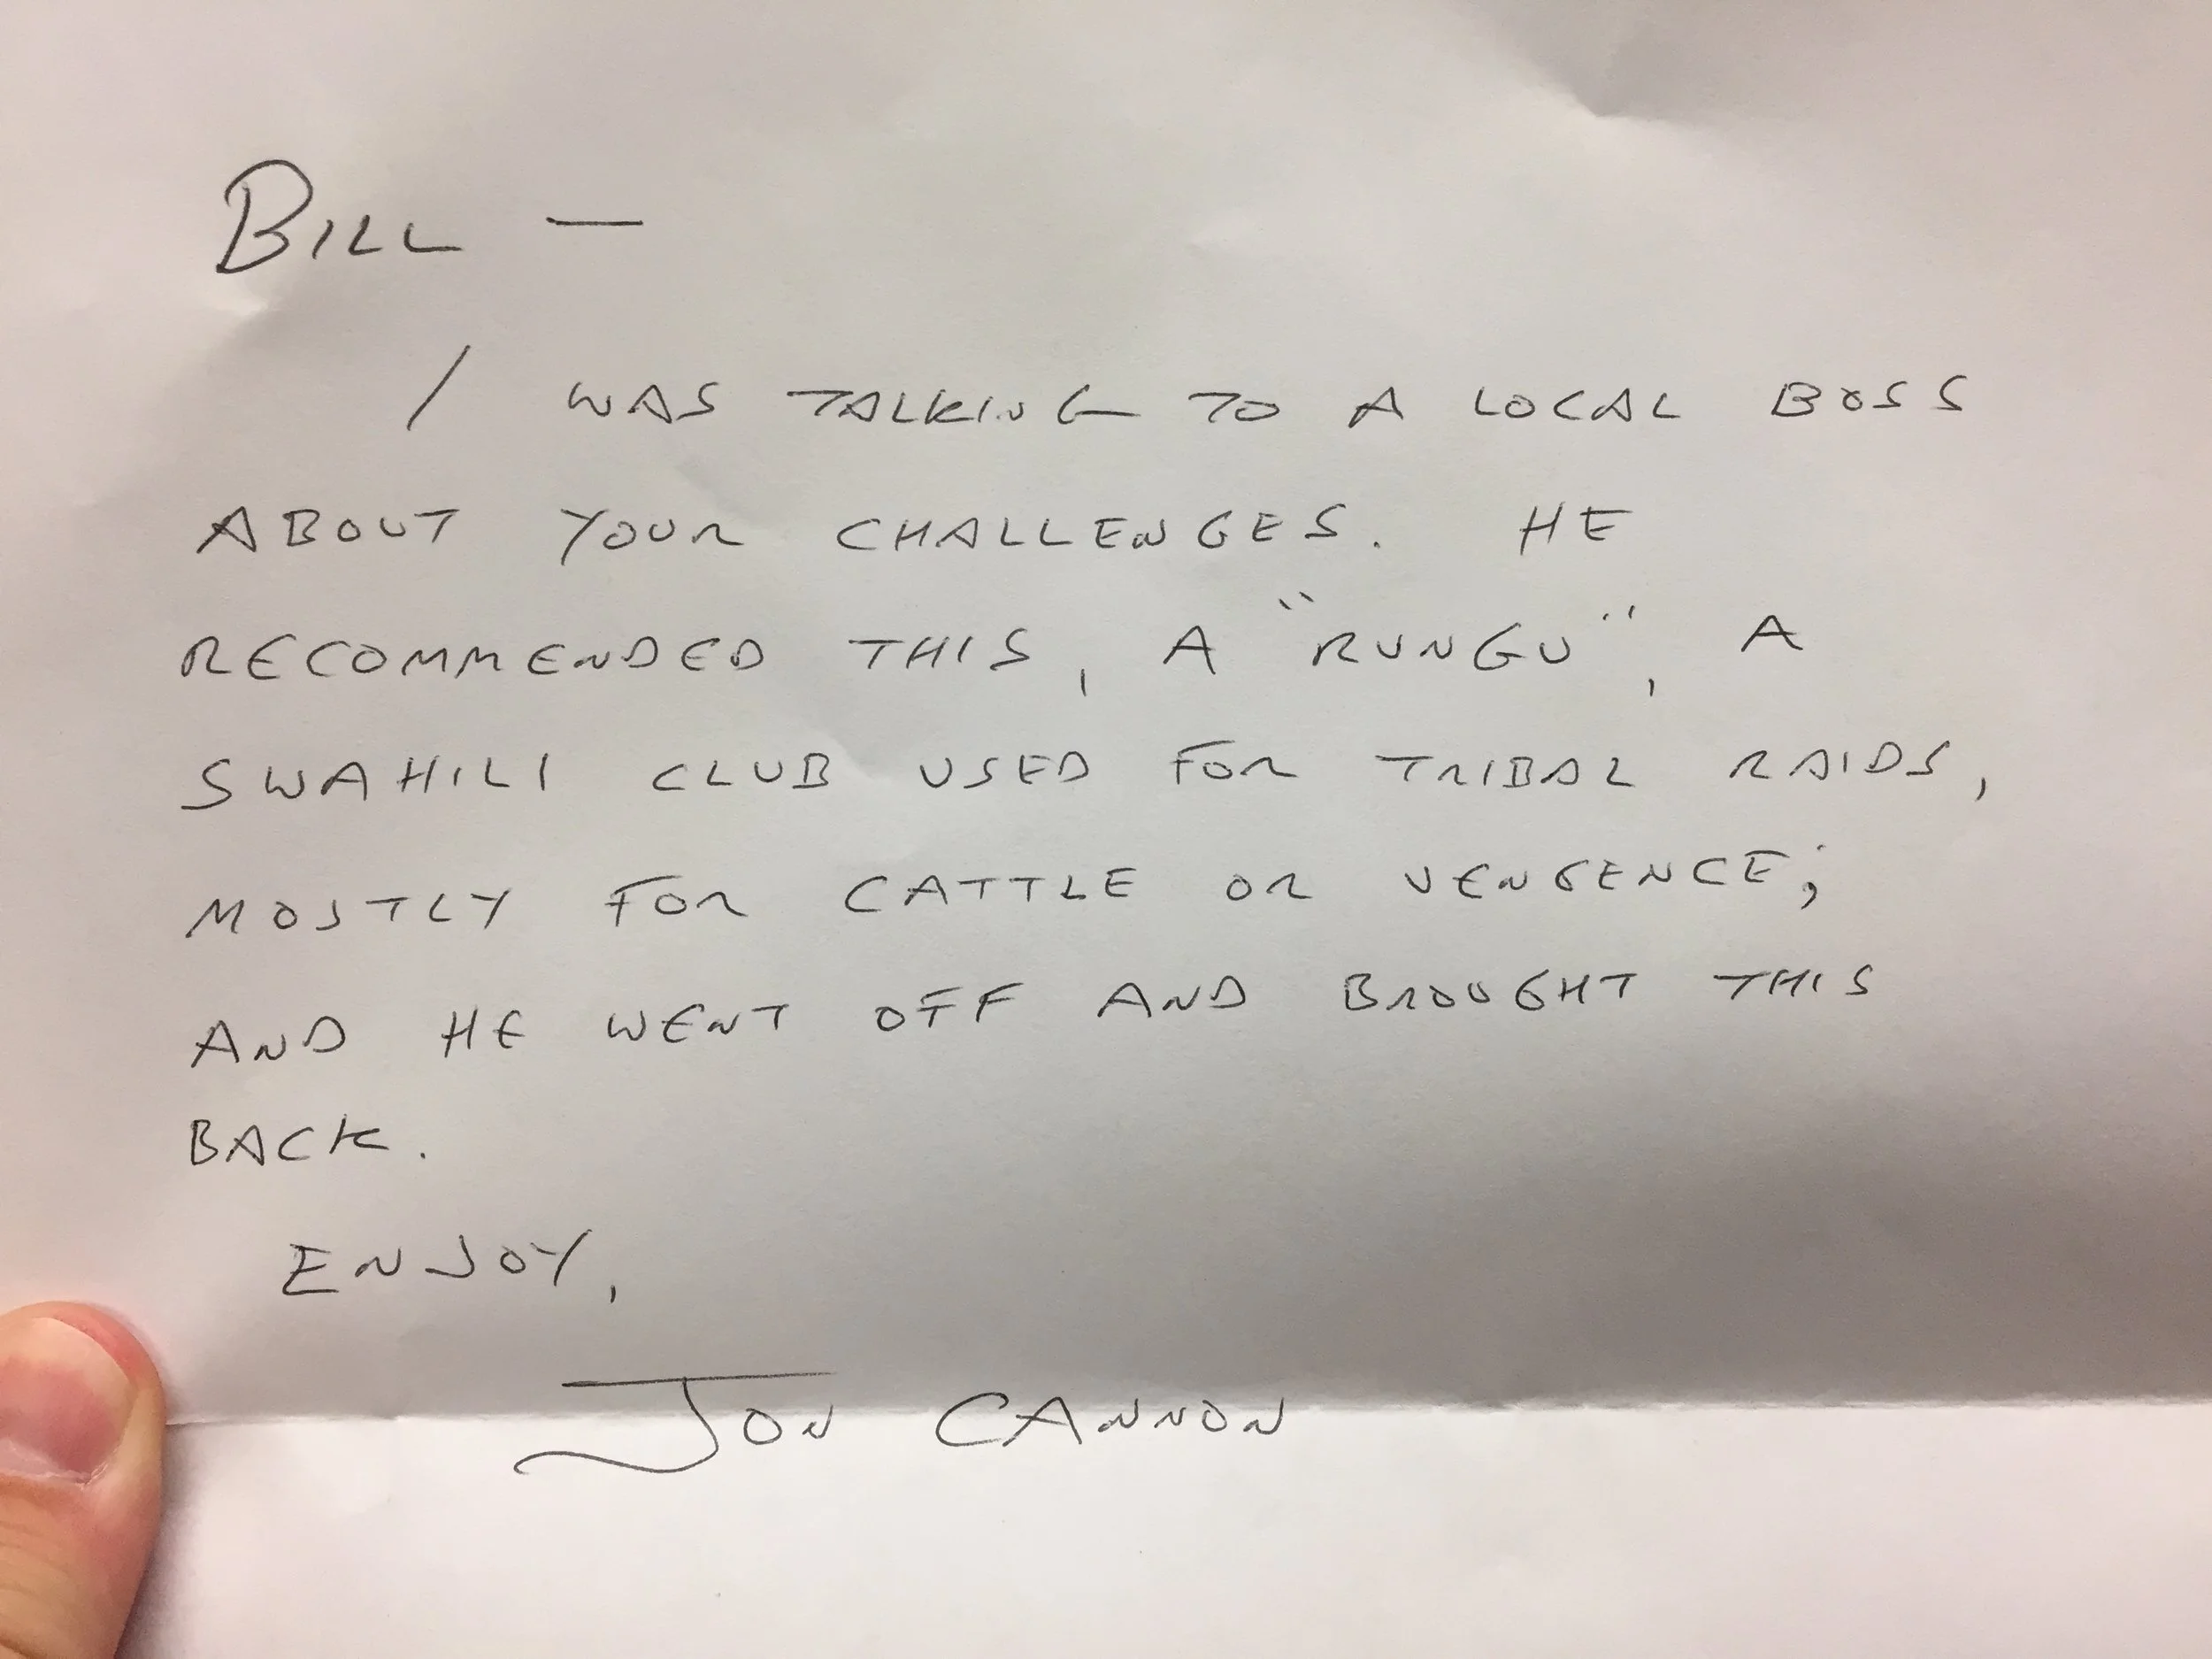 BILL —
I WAS TALKING TO A LOCAL BOSS
ABOUT YOUR CHALLENGES. HE
RECOMMENDED THIS, A "RUNGU", A
SWAHILI CLUB USED FOR TRIBAL RAIDS,
MOSTLY FOR CATTLE OR VENGENCE;
AND HE WENT OFF AND BROUGHT THIS
BACK.
ENJOY,
JON CANNON